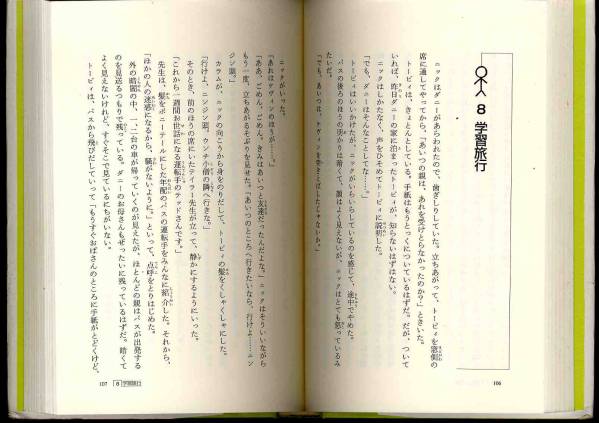 8 学習旅行
ニックはダニーがあらわれたので、歯ぎしりしていた。立ちあがって、トービィを窓側の
席に通してやってから、「あいつの親は、あれを受けとらなかったのか?」ときいた。
トービィは、きょとんとしている。手紙はもうとっくについているはずだ。だが、ついて
いれば、昨日ダニーの家に泊まったトービィが、知らないはずはない。
ニックはしかたなく、声をひそめてトービィに説明した。
「でも、ダニーはそんなことしてな……。」
トービィはいいかけたが、ニックがいらいらしているのを感じて、途中でやめた。
バスの後ろのほうの明かりは暗くて、顔はよく見えないが、ニックはとても怒っているみ
たいだ。
「でも、あいつは、ケヴィンを突きとばしたじゃないか。」
106
ニックがいった。
「あれはケヴィンのほうが……。」
「ああ、ごめん、ごめん。きみはあいつと友達だったんだよな。」ニックはそういいながら
もう一度、立ちあがるそぶりを見せた。「あいつのところへ行きたいなら、行けよ……ニン
ジン頭。」
カラムが、ニックの向こうから身をのりだして、トービィの髪をくしゃくしゃにした。
「行けよ、ニンジン頭、ウンチ小僧の隣へ行きな。」
そのとき、前のほうの席にいたテイラー先生が立って、静かにするようにいった。
「これから一週間お世話になる運転手のテッドさんです。」
先生は、髪をポニーテールにした年配のバスの運転手をみんなに紹介した。それから、
「ほかの人の迷惑になるから、騒がないように。」といって、点呼をとりはじめた。
外の暗闇の中、一、二台の車が帰っていくのが見えたが、ほとんどの親はバスが出発する
のを見送るつもりで残っている。ダニーのお母さんもぜったいに残っているはずだ。暗くて
よく見えないけれど、すぐそこで見ているにちがいない。
トービィは、バスから飛びだしていって「もうすぐおばさんのところに手紙がとどくけど、
107 8 学習旅行